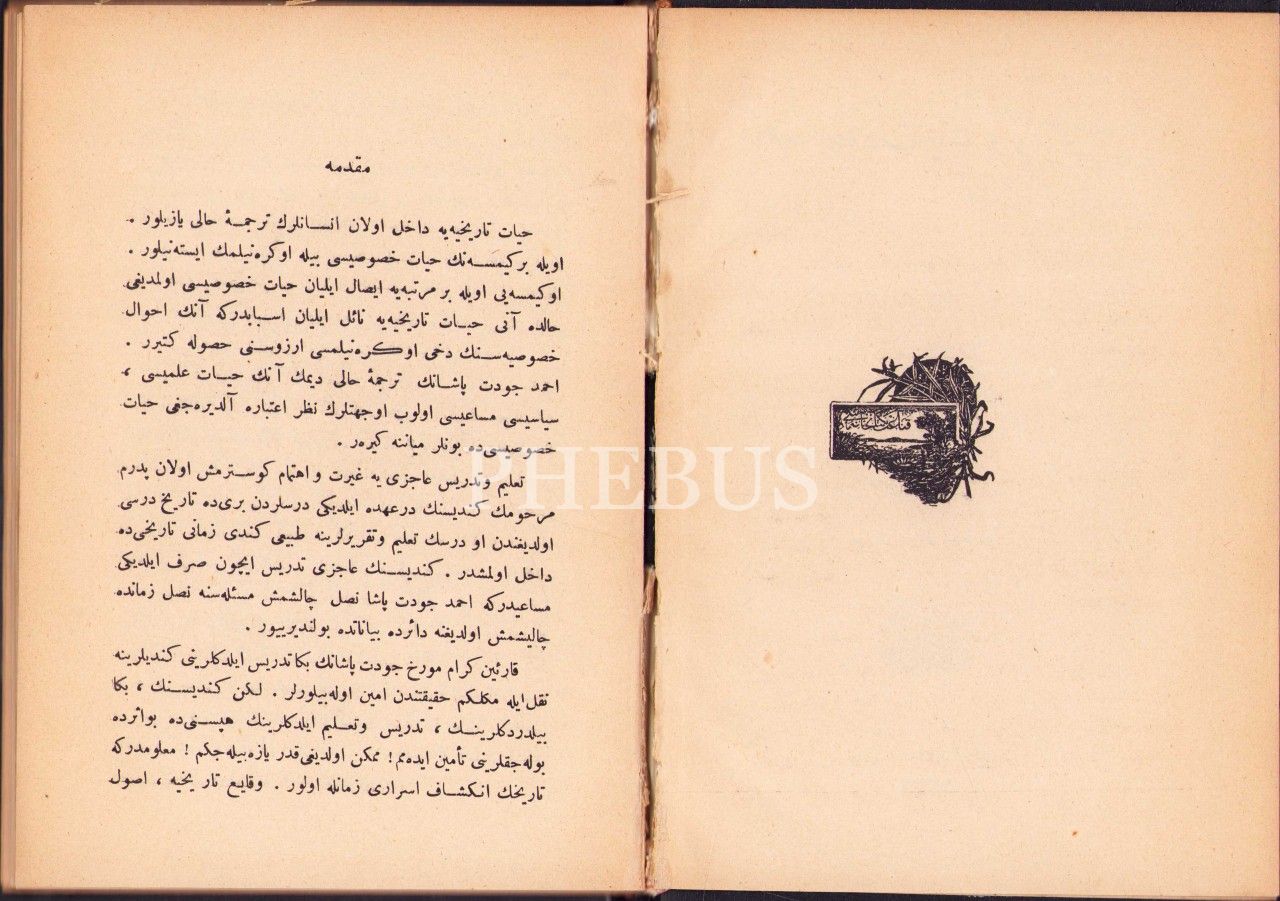 قناعت كتابخانه سى
مقدمه
حيات تاريخيه‌يه داخل اولان انسانلرك ترجمهٔ حالى يازيلور .
اويله بركيمسه‌نك حيات خصوصيسى بيله اوكره‌نيلمك ايسته‌نيلور .
اوكيمسه‌يى اويله بر مرتبه‌يه ايصال ايليان حيات خصوصيسى اولمديغى
حالده آنى حيات تاريخيه‌يه نائل ايليان اسبابدركه آنك احوال
خصوصيه‌سنك دخى اوكره‌نيلمسى ارزوسنى حصوله كتيرر .
احمد جودت پاشانك ترجمهٔ حالى ديمك آنك حيات علميسى ،
سياسيسى مساعيسى اولوب اوجهتلرك نظر اعتباره آلديره‌جغى حيات
خصوصيسى‌ده بونلر ميا‌ننه كيره‌ر .
تعليم وتدريس عاجزى يه غيرت و اهتمام كوسترمش اولان پدرم
مرحومك كنديسنك درعهده ايلديكى درسلردن برى‌ده تاريخ درسى
اولديغندن او درسك تعليم وتقريرلرينه طبيعى كندى زمانى تاريخى‌ده
داخل اولمشدر . كنديسنك عاجزى تدريس ايچون صرف ايلديكى
مساعيدركه احمد جودت پاشا نصل چالشمش مسئله‌سنه نصل زمانده
چاليشمش اولديغنه دائرده بياناتده بولنديرييور .
قارئين كرام مورخ جودت پاشانك بكا تدريس ايلدكلرينى كنديلرينه
نقل ايله مكلكم حقيقتندن امين اوله‌بيلورلر . لكن كنديسنك ، بكا
بيلدردكلرينك ، تدريس وتعليم ايلدكلرينك هپسنى‌ده بواثرده
بوله‌جقلرينى تأمين ايده‌مم ! ممكن اولديغى قدر يازه‌بيله‌جكم ! معلومدركه
تاريخك انكشاف اسرارى زمانله اولور . وقايع تاريخيه ، اصول
PHEBUS